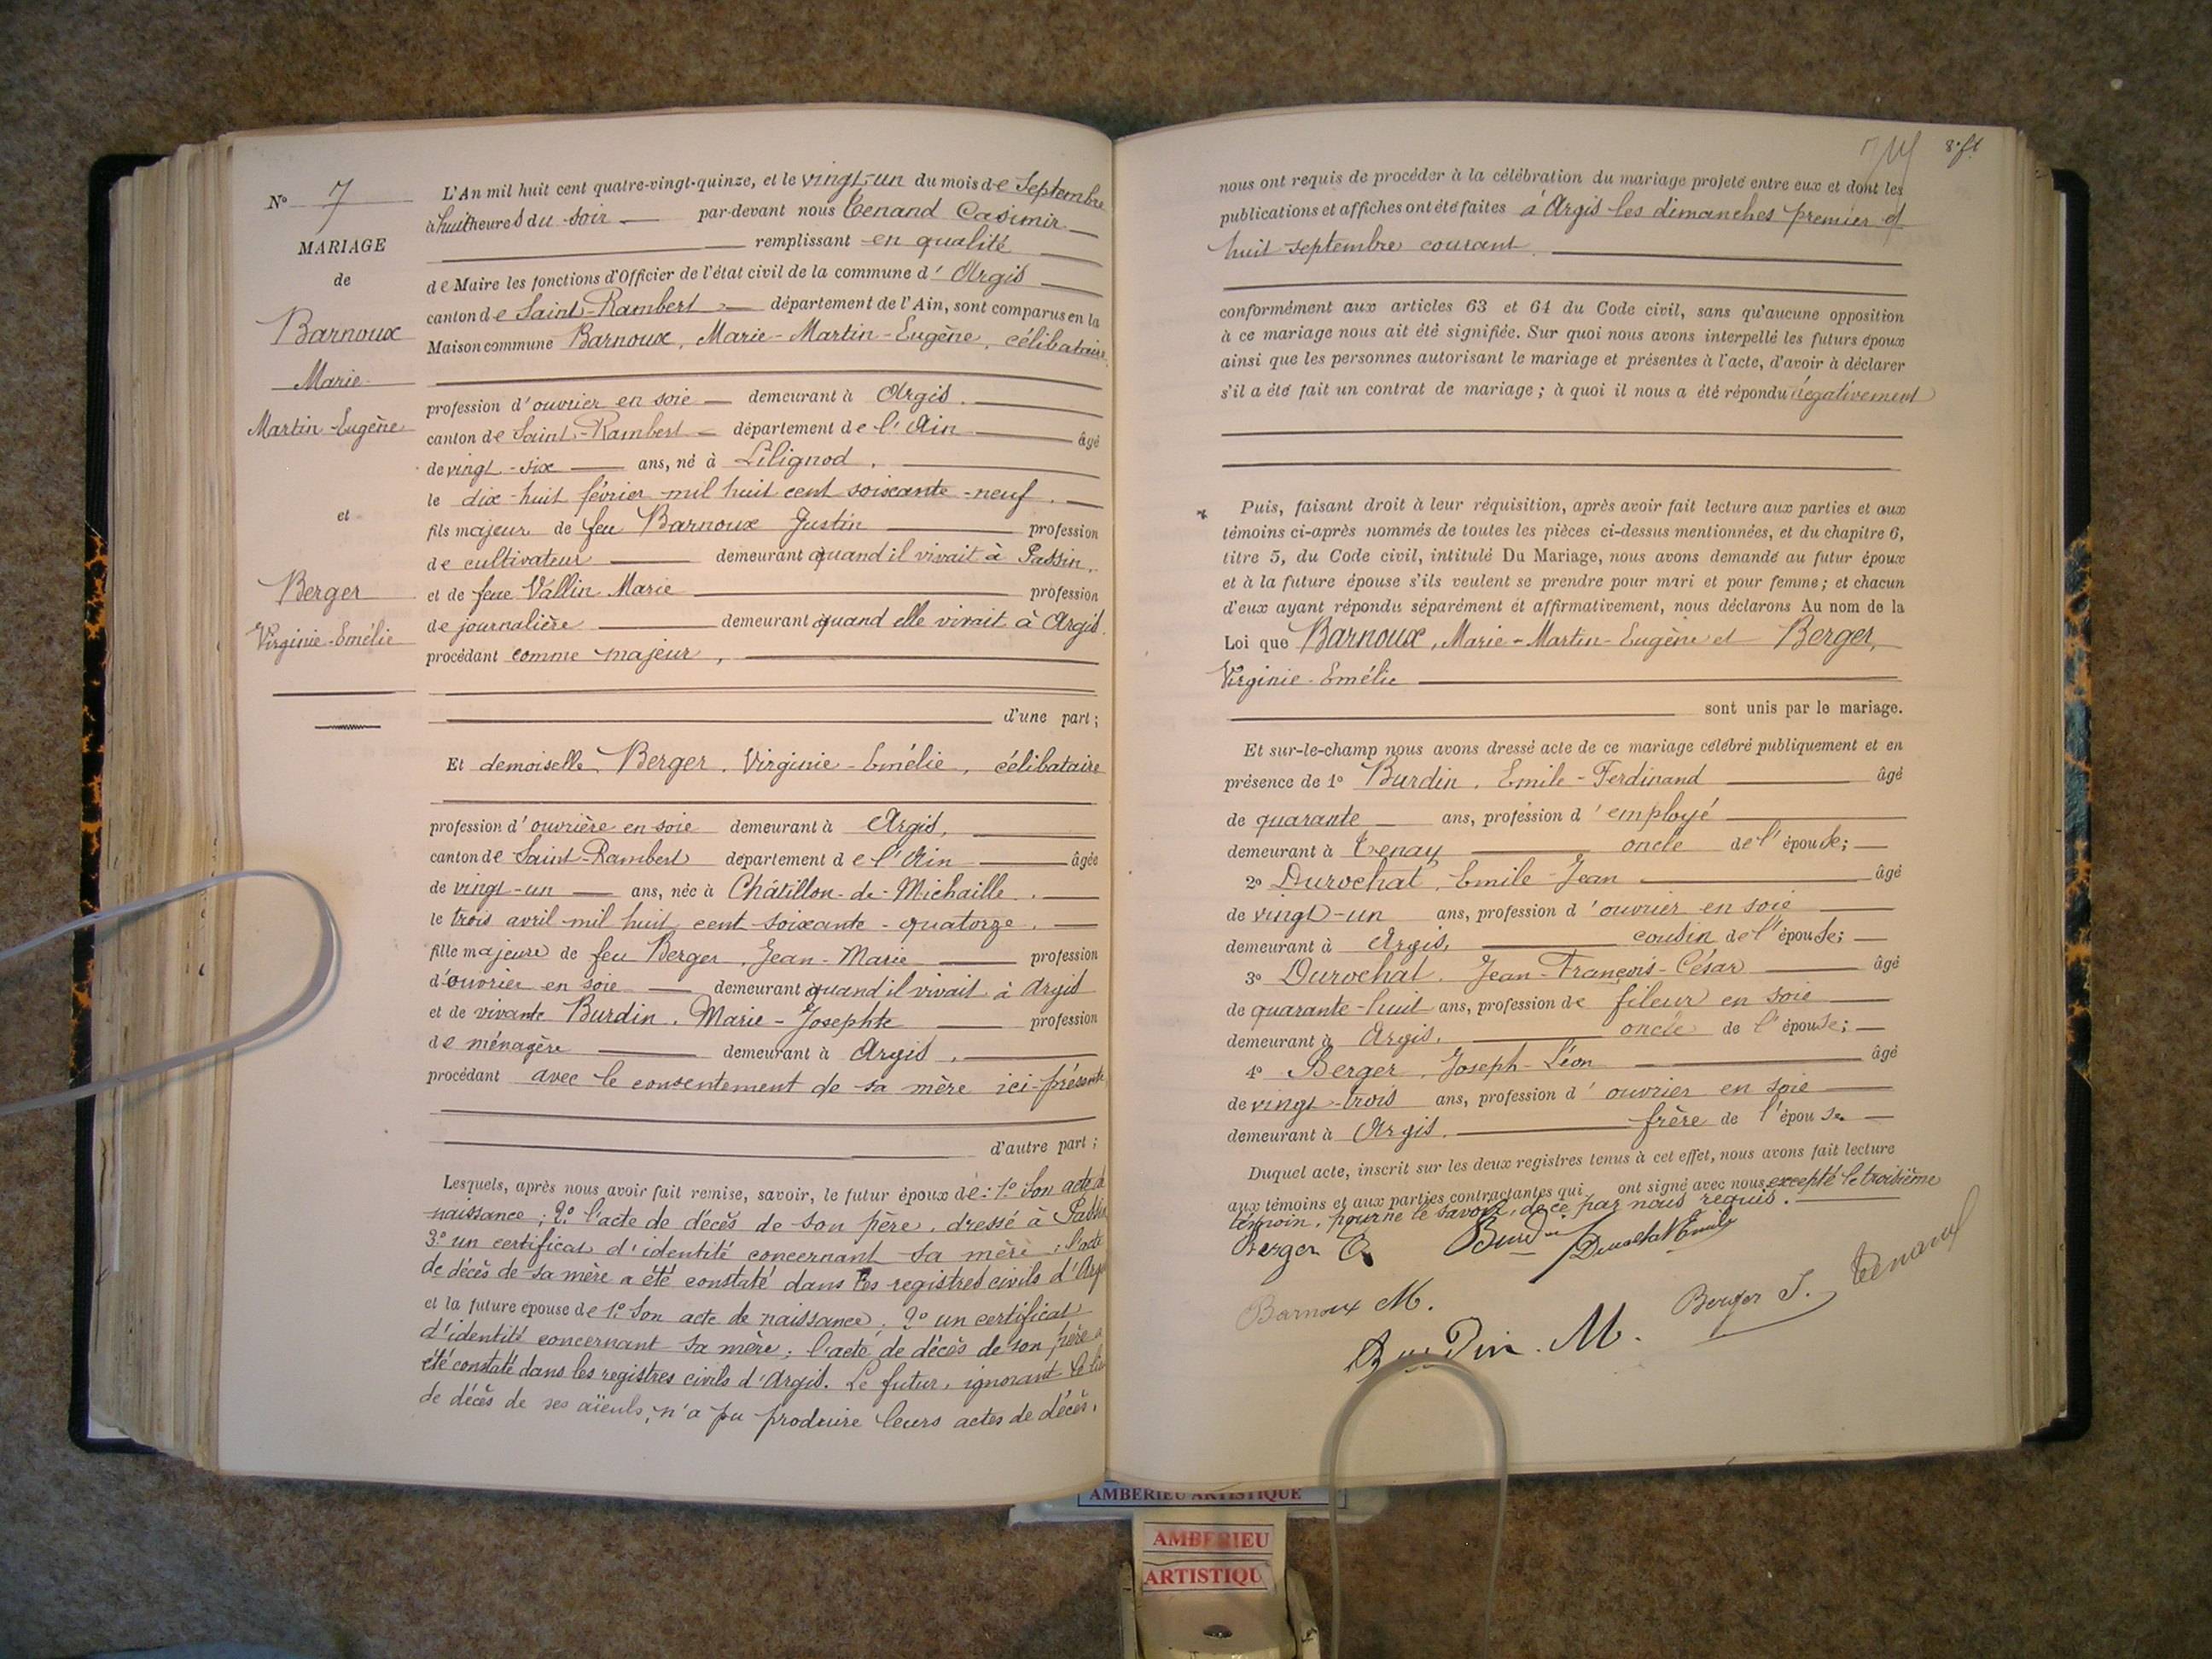 N° 7
MARIAGE
de
Barnoux
Marie
Martin-Eugène
et
Berger
Virginie-Emélie
L'An mil huit cent quatre-vingt-quinze, et le vingt-un du mois de Septembre
à huit heures du soir par-devant nous Tenand Casimir
remplissant en qualité
de Maire les fonctions d'Officier de l'état civil de la commune d'Argis
canton de Saint-Rambert département de l'Ain, sont comparus en la
Maison commune Barnoux, Marie-Martin-Eugène, célibataire,
profession d'ouvrier en soie demeurant à Argis.
canton de Saint-Rambert département de l'Ain âgé
de vingt-six ans, né à Lilignod,
le dix-huit février mil huit cent soixante-neuf.
fils majeur de feu Barnoux Justin profession
de cultivateur demeurant quand il vivait à Passin,
et de feue Vallin Marie profession
de journalière demeurant quand elle vivait à Argis.
procédant comme majeur,
d'une part;
Et demoiselle Berger, Virginie-Emélie, célibataire
profession d'ouvrière en soie demeurant à Argis,
canton de Saint-Rambert département de l'Ain âgée
de vingt-un ans, née à Châtillon-de-Michaille.
le trois avril mil huit cent soixante-quatorze.
fille majeure de feu Berger, Jean-Marie profession
d'ouvrier en soie demeurant quand il vivait à Argis
et de vivante Burdin, Marie-Josephte profession
de ménagère demeurant à Argis.
procédant avec le consentement de sa mère ici-présente
d'autre part;
Lesquels, après nous avoir fait remise, savoir, le futur époux de: 1° Son acte de
naissance; 2° l'acte de décès de son père, dressé à Passin
3° un certificat d'identité concernant sa mère; l'acte
de décès de sa mère a été constaté dans les registres civils d'Argis
et la future épouse de 1° Son acte de naissance, 2° un certificat
d'identité concernant sa mère; l'acte de décès de son père a
été constaté dans les registres civils d'Argis. Le futur, ignorant le lieu
de décès de ses aïeuls, n'a pu produire leurs actes de décès.
8e ft
nous ont requis de procéder à la célébration du mariage projeté entre eux et dont les
publications et affiches ont été faites à Argis les dimanches premier et
huit septembre courant.
conformément aux articles 63 et 64 du Code civil, sans qu'aucune opposition
à ce mariage nous ait été signifiée. Sur quoi nous avons interpellé les futurs époux
ainsi que les personnes autorisant le mariage et présentes à l'acte, d'avoir à déclarer
s'il a été fait un contrat de mariage; à quoi il nous a été répondu négativement
Puis, faisant droit à leur réquisition, après avoir fait lecture aux parties et aux
témoins ci-après nommés de toutes les pièces ci-dessus mentionnées, et du chapitre 6,
titre 5, du Code civil, intitulé Du Mariage, nous avons demandé au futur époux
et à la future épouse s'ils veulent se prendre pour mari et pour femme; et chacun
d'eux ayant répondu séparément et affirmativement, nous déclarons Au nom de la
Loi que Barnoux, Marie-Martin-Eugène et Berger,
Virginie-Emélie
sont unis par le mariage.
Et sur-le-champ nous avons dressé acte de ce mariage célébré publiquement et en
présence de 1° Burdin, Emile-Ferdinand âgé
de quarante ans, profession d'employé
demeurant à Tenay oncle de l'épouse;
2° Durochat, Emile-Jean âgé
de vingt-un ans, profession d'ouvrier en soie
demeurant à Argis, cousin de l'épouse;
3° Durochat, Jean-François-César âgé
de quarante-huit ans, profession de fileur en soie
demeurant à Argis, oncle de l'épouse;
4° Berger, Joseph-Léon âgé
de vingt-trois ans, profession d'ouvrier en soie
demeurant à Argis. frère de l'épouse
Duquel acte, inscrit sur les deux registres tenus à cet effet, nous avons fait lecture
aux témoins et aux parties contractantes qui ont signé avec nous excepté le troisième
témoin, pour ne le savoir, de ce par nous requis.
Berger Burdin Durochat Emile
Barnoux M. Berger J. Tenand
Burdin. M.
AMBERIEU ARTISTIQUE
AMBERIEU
ARTISTIQU